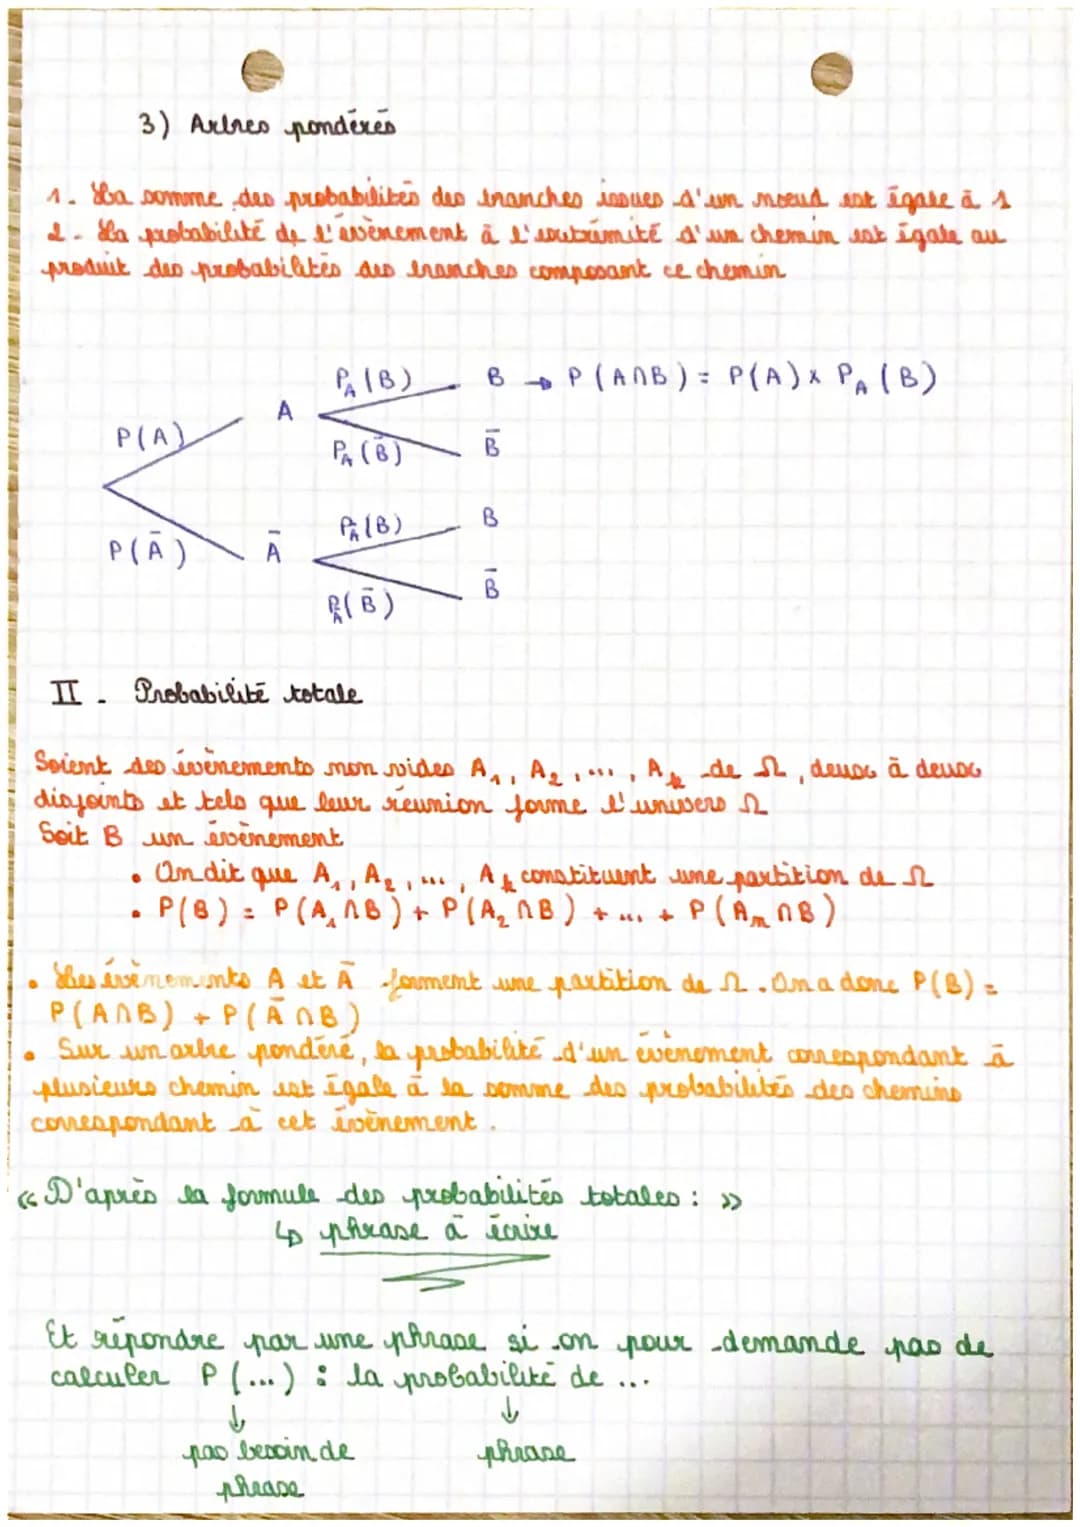 3) Arbres pondérés
1. La somme des probabilités des branches issues d'un noeud est égale à 1
2. La probabilité de l'évènement à l'extrémité d'un chemin est égale au
produit des probabilités des branches composant ce chemin
P_A(B) B → P(A∩B) = P(A) x P_A(B)
A
P(A)
P_A(B̄) B̄
P_Ā(B) B
P(Ā) Ā
P_Ā(B̄) B̄
II - Probabilité totale
Soient des évènements non vides A₁, A₂, ..., Aₖ de Ω, deux à deux
disjoints et tels que leur réunion forme l'univers Ω
Soit B un évènement
• On dit que A₁, A₂, ..., Aₖ constituent une partition de Ω
• P(B) = P(A₁∩B) + P(A₂∩B) + ... + P(Aₙ∩B)
• Les évènements A et Ā forment une partition de Ω. On a donc P(B) =
P(A∩B) + P(Ā∩B)
• Sur un arbre pondéré, la probabilité d'un évènement correspondant à
plusieurs chemin est égale à la somme des probabilités des chemins
correspondant à cet évènement.
« D'après la formule des probabilités totales : »
↳ phrase à écrire
Et répondre par une phrase si on pour demande pas de
calculer P(...) : la probabilité de ...
↓ ↓
pas besoin de phrase
phrase